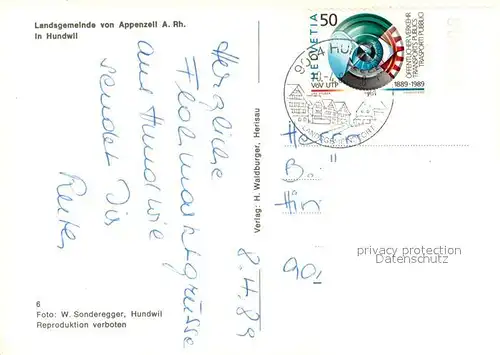 Landsgemeinde von Appenzell A. Rh.
in Hundwil
HELVETIA 50
ÖFFENTLICHER VERKEHR
TRANSPORTS PUBLICS
TRASPORTI PUBBLICI
VöV UTP
1889-1989
Herzliche
Flohmarktgrüsse
aus Hundwil
sendet Dir
8.4.89
Verlag: H. Waldburger, Herisau
Herrn
B.
90
privacy protection
Datenschutz
6
Foto: W. Sonderegger, Hundwil
Reproduktion verboten